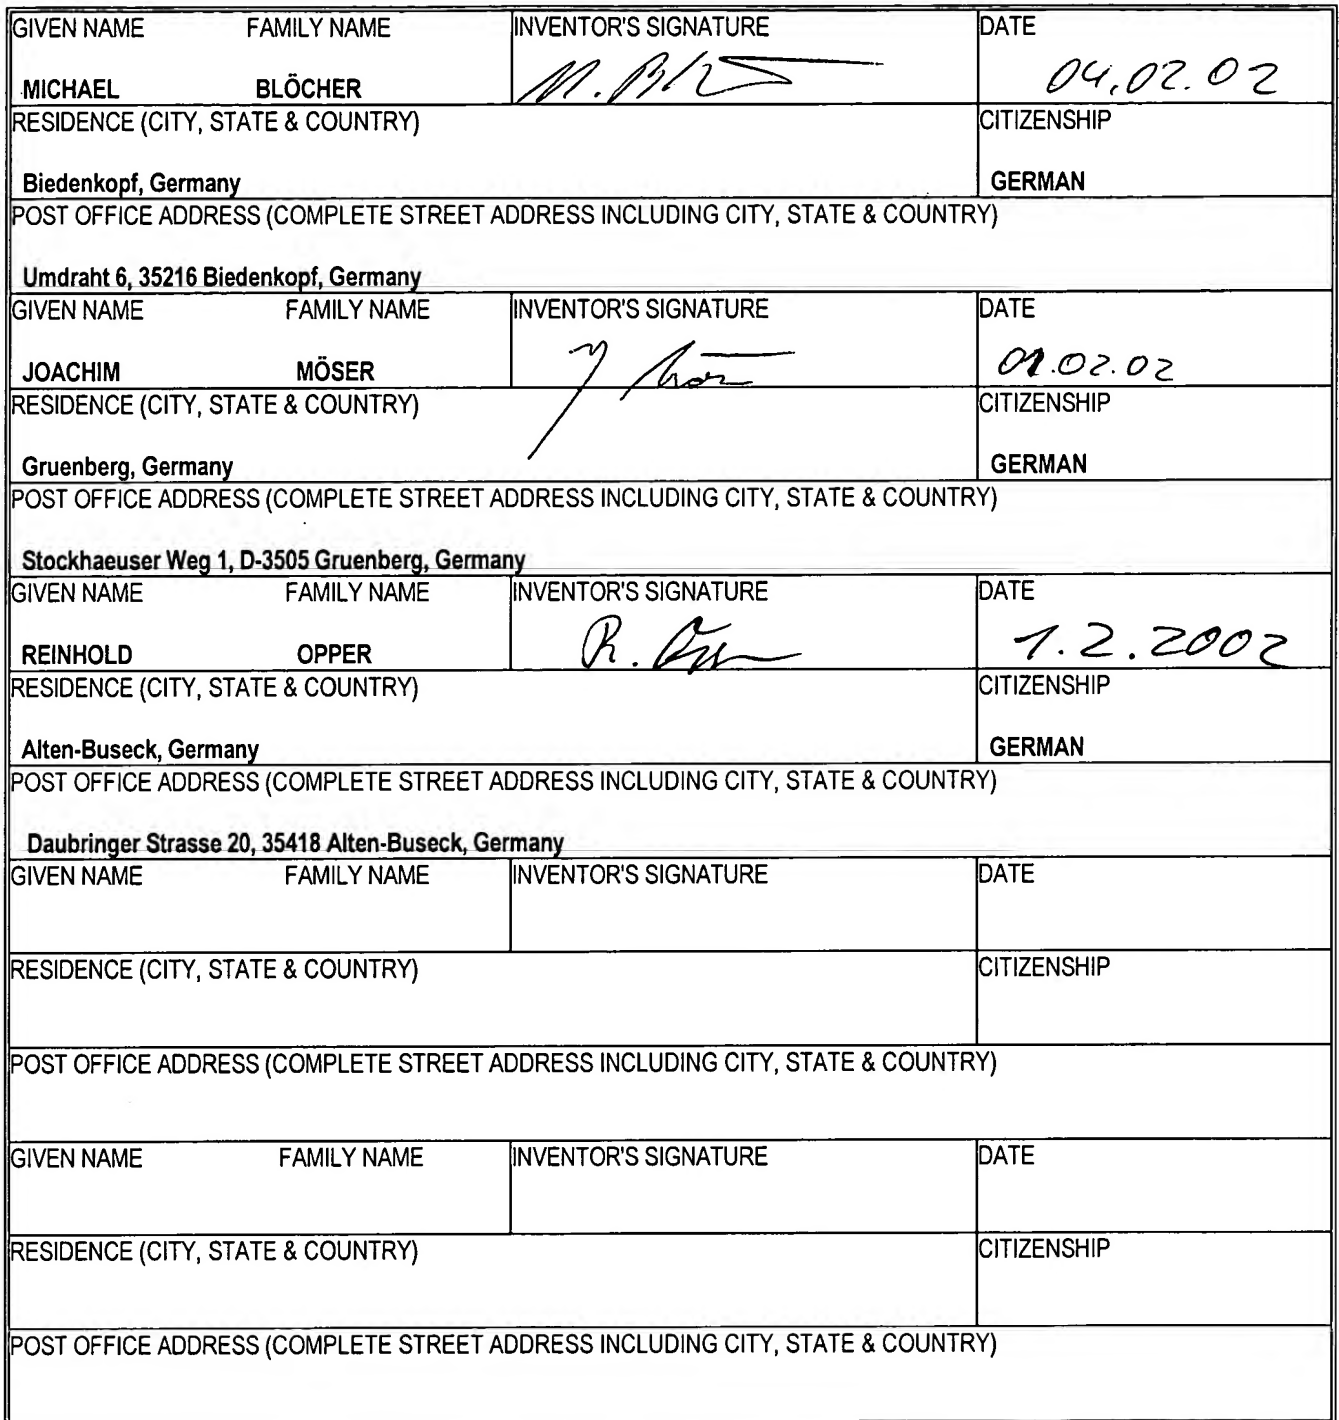 GIVEN NAME FAMILY NAME INVENTOR'S SIGNATURE DATE
MICHAEL BLÖCHER M. Bl 04.02.02
RESIDENCE (CITY, STATE & COUNTRY) CITIZENSHIP
Biedenkopf, Germany GERMAN
POST OFFICE ADDRESS (COMPLETE STREET ADDRESS INCLUDING CITY, STATE & COUNTRY)
Umdraht 6, 35216 Biedenkopf, Germany
GIVEN NAME FAMILY NAME INVENTOR'S SIGNATURE DATE
JOACHIM MÖSER 01.02.02
RESIDENCE (CITY, STATE & COUNTRY) CITIZENSHIP
Gruenberg, Germany GERMAN
POST OFFICE ADDRESS (COMPLETE STREET ADDRESS INCLUDING CITY, STATE & COUNTRY)
Stockhaeuser Weg 1, D-3505 Gruenberg, Germany
GIVEN NAME FAMILY NAME INVENTOR'S SIGNATURE DATE
REINHOLD OPPER R. 1.2.2002
RESIDENCE (CITY, STATE & COUNTRY) CITIZENSHIP
Alten-Buseck, Germany GERMAN
POST OFFICE ADDRESS (COMPLETE STREET ADDRESS INCLUDING CITY, STATE & COUNTRY)
Daubringer Strasse 20, 35418 Alten-Buseck, Germany
GIVEN NAME FAMILY NAME INVENTOR'S SIGNATURE DATE
RESIDENCE (CITY, STATE & COUNTRY) CITIZENSHIP
POST OFFICE ADDRESS (COMPLETE STREET ADDRESS INCLUDING CITY, STATE & COUNTRY)
GIVEN NAME FAMILY NAME INVENTOR'S SIGNATURE DATE
RESIDENCE (CITY, STATE & COUNTRY) CITIZENSHIP
POST OFFICE ADDRESS (COMPLETE STREET ADDRESS INCLUDING CITY, STATE & COUNTRY)